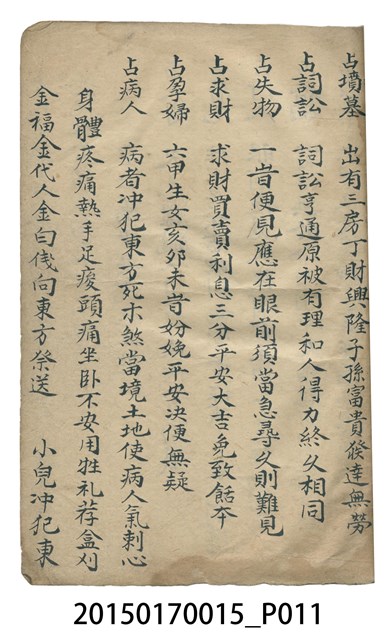 占墳墓 出有三房丁財興隆子孫富貴發達無勞
占詞訟 詞訟亨通原被有理和人得力終久相同
占失物 一旹便見應在眼前須當急尋久則難見
占求財 求財買賣利息三分平安大吉免致餂本
占孕婦 六甲生女亥卯未旹妢娩平安決便無疑
占病人 病者冲犯東方死木煞當境土地使病人氣刺心
身體疼痛熱手足痠頭痛坐卧不安用牲礼荐盒刈
金福金代人金白伐向東方祭送 小兒冲犯東
20150170015_P011